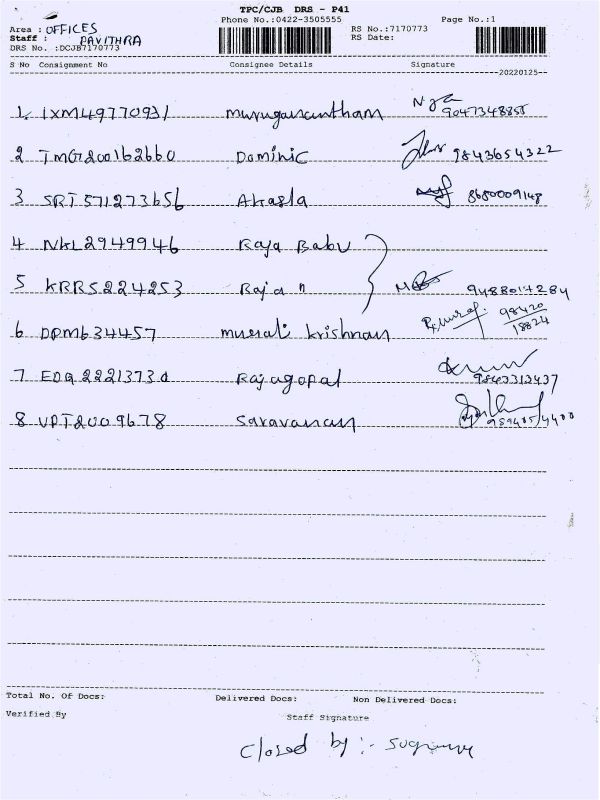 TPC/CJB DRS - P41
Area : OFFICES Phone No.:0422-3505555 RS No.:7170773 Page No.:1
Staff : PAVITHRA RS Date:
DRS No. :DCJB7170773
S No Consignment No Consignee Details Signature
20220125
1. IXM49770931 muruganantham 9047348855
2 TMG200162660 Dominic 9843654322
3 SRT571273656 Akasla 8680009148
4 NKL2949946 Raja Babu
5 KRR5224253 Rajan 9488017284
6 DPM634457 murali krishnan 98420
18824
7 EDQ2221373 Rajagopal 9843313437
8 VPT2009678 Saravanan
Total No. Of Docs: Delivered Docs: Non Delivered Docs:
Verified By Staff Signature
Closed by :-